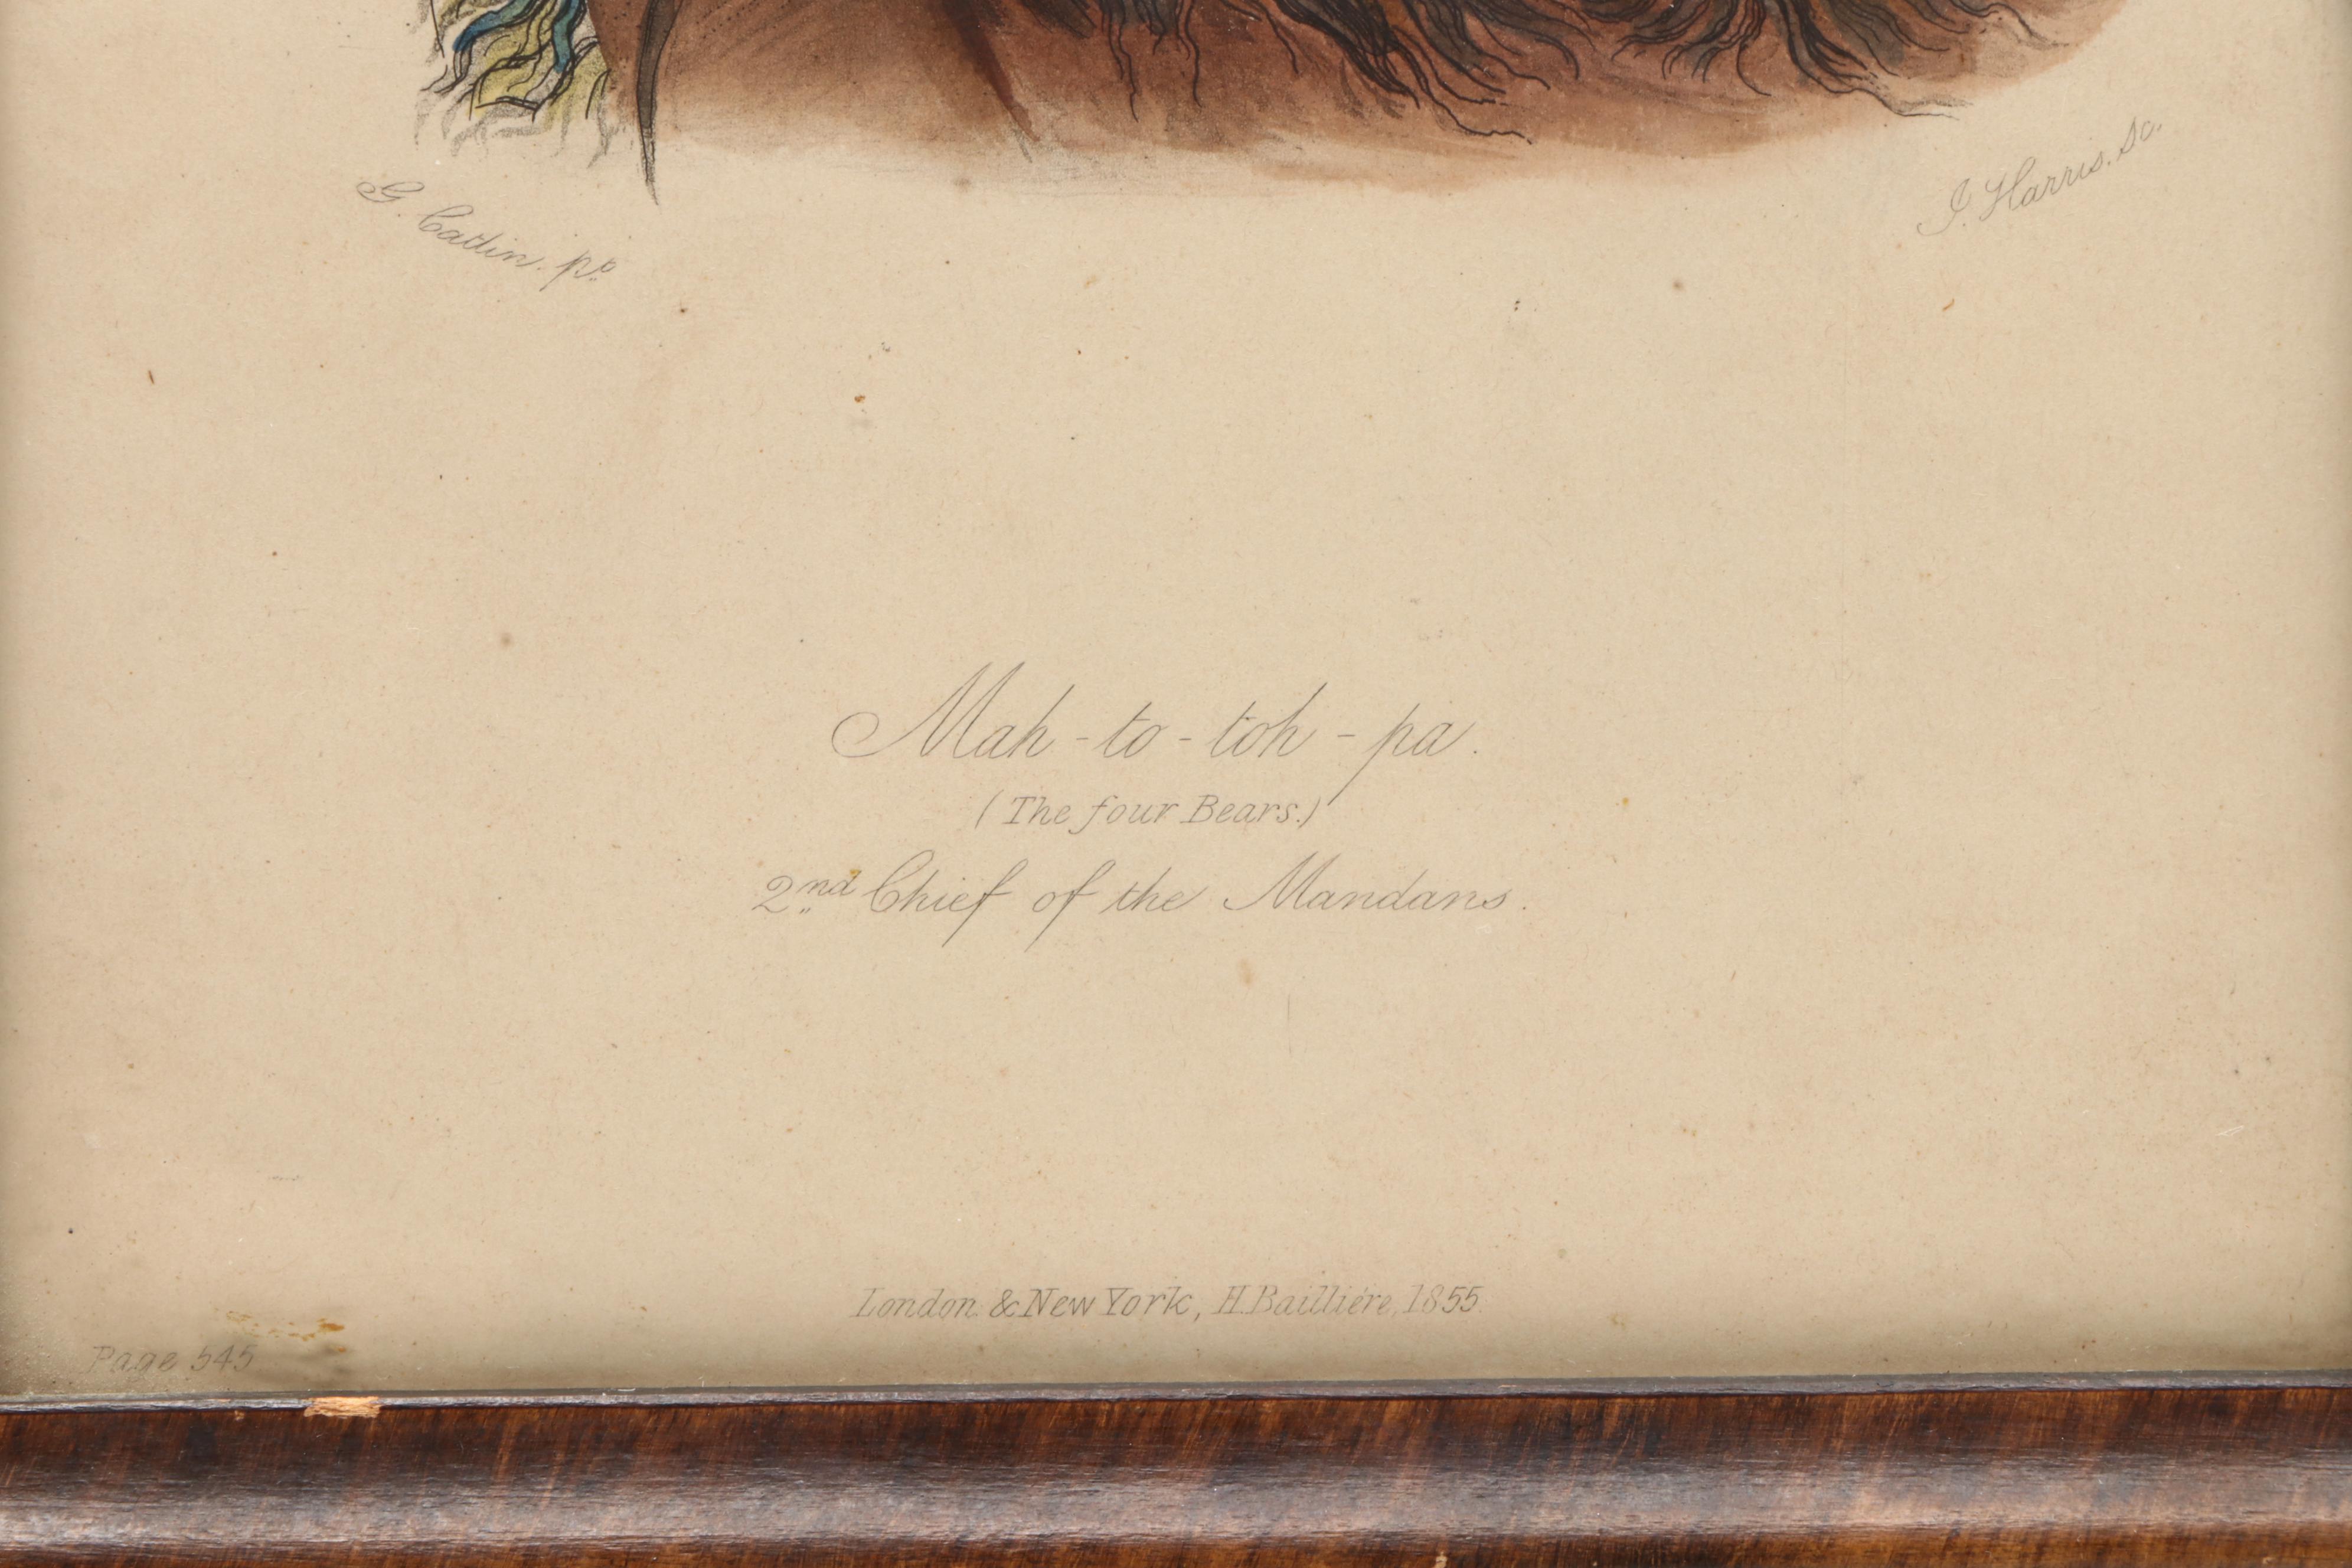 G. Catlin. pt.
J. Harris. sc.
Mah-to-toh-pa.
(The four Bears.)
2nd Chief of the Mandans.
London & New York, H. Baillière, 1855.
Page 545